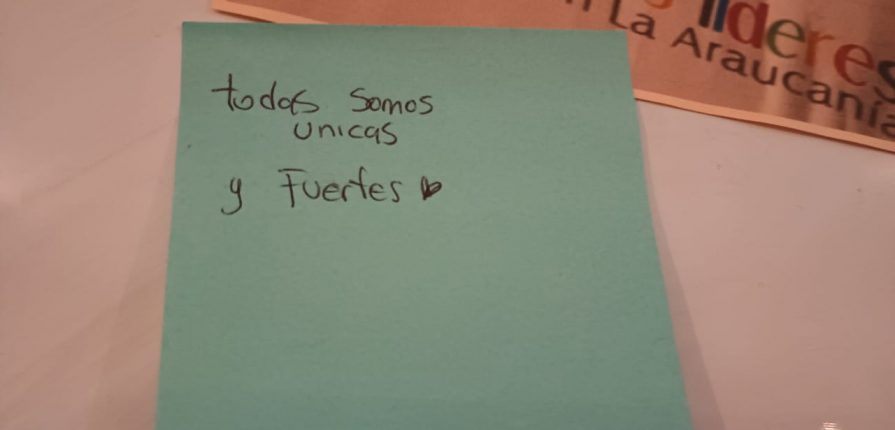 líderes
La Araucanía
todas somos
unicas
y Fuertes